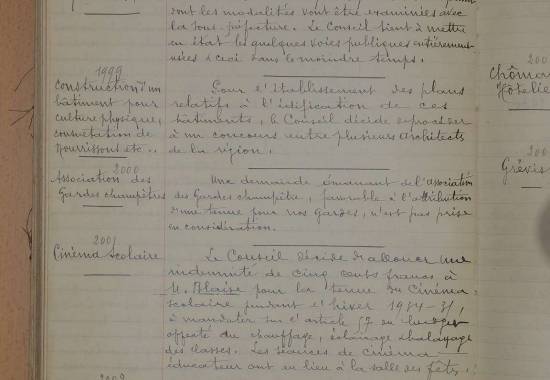 dont les modalités vont être examinées avec
la sous-préfecture. Le Conseil tient à mettre
en état les quelques voies publiques entièrement
usées & ceci dans le moindre temps.
1999
Construction d'un
bâtiment pour
culture physique,
consultation de
Nourrissons etc..
Pour l'établissement des plans
relatifs à l'édification de ces
bâtiments, le Conseil décide
à un concours entre plusieurs architects
de la région.
2000
Association des
Gardes champêtres
Une demande émanant de l'association
des Gardes champêtre, favorable à l'attribution
d'une tenue pour nos gardes, n'est pas prise
en considération.
2001
Cinéma scolaire
Le Conseil décide d'allouer une
indemnité de cinq cents francs à
M. Blaise pour la tenue du Cinéma
scolaire pendant l'hiver
à mandater sur l'article 57 du budget
affecté du chauffage, éclairage & balayage
des classes. Les séances de cinéma
éducateur ont eu lieu à la salle des fêtes;
2002
200
Chômar
Hôtelie
Grévis